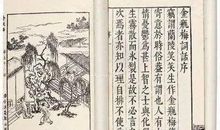 金瓶梅詞話序
竊謂蘭陵笑笑生作金瓶梅
寄意於時俗蓋有謂也人有
情憂鬱為甚上智之士與化
生霧散而氷裂是故不必言
次焉者亦知以理自排不使